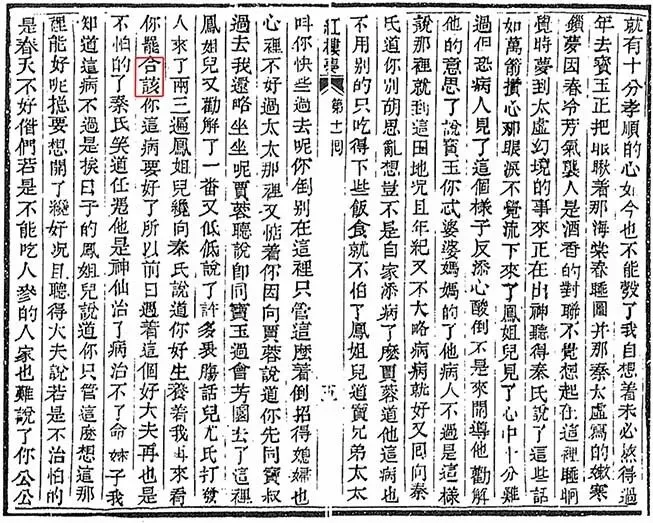 就有十分孝順的心如今也不能彀了我自想着未必熬得過
年去寳玉正把眼瞅着那海棠春睡圖并那秦太虛寫的嫩寒
鎖夢因春冷芳氣襲人是酒香的對聯不覺想起在這裡睡晌
覺時夢到太虛幻境的事來正在出神聽得秦氏說了這些話
如萬箭攢心那眼淚不覺流下來了鳳姐兒見了心中十分難
過但恐病人見了這個樣子反添心酸倒不是來開導他勸解
他的意思了說寳玉你忒婆婆媽媽的了他病人不過是這樣
說那裡就到這田地況且年紀又不大略病病就好又囘向秦
氏道你別胡思亂想豈不是自家添病了麽賈蓉道他這病也
不用別的只吃得下些飯食就不怕了鳳姐兒道寳兄弟太太
紅樓夢 第十一囘
叫你快些過去呢你倒別在這裡只管這麽着倒招得媳婦也
心裡不好過太太那裡又惦着你因向賈蓉說道你先同寳叔
過去我還略坐坐呢賈蓉聽說卽同寳玉過會芳園去了這裡
鳳姐兒又勸解了一番又低低說了許多衷腸話兒尤氏打發
人來了兩三遍鳳姐兒纔向秦氏說道你好生養着我再來看
你罷合該你這病要好了所以前日遇着這個好大夫再也是
不怕的了秦氏笑道任憑他是神仙治了病治不了命嬸子我
知道這病不過是挨日子的鳳姐兒說道你只管這麽想這那
裡能好呢總要想開了纔好況且聽得大夫說若是不治怕的
是春天不好偺們若是不能吃人參的人家也難說了你公公